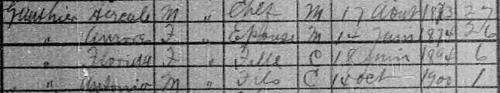 Gauthier Hercule M " Chef M 17 Aout 1873 27
" Aurore F " Epouse M 14 Juin 1874 26
" Florida F " Fille C 18 Juin 1894 6
" Antonio M " Fils C 14 oct 1900 1